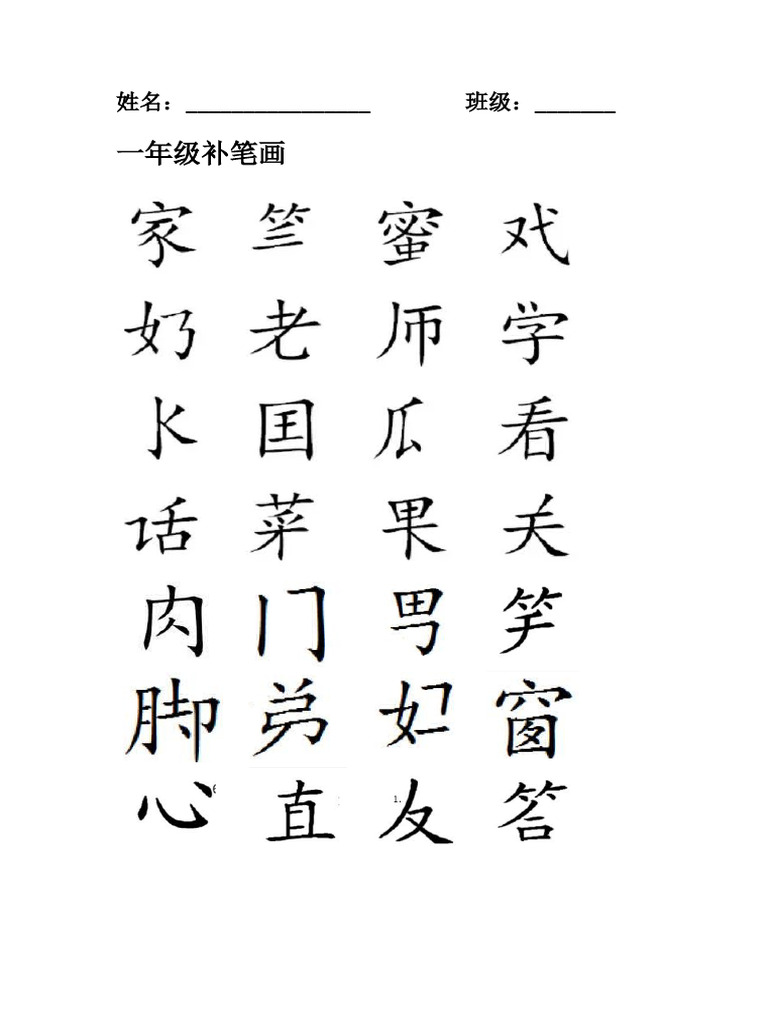 姓名：________________ 班级：_______
一年级补笔画
家 笁 蜜 戏
奶 老 师 学
长 囯 瓜 看
话 菜 果 关
肉 门 男 笑
脚 弟 妈 窗
心 直 友 答